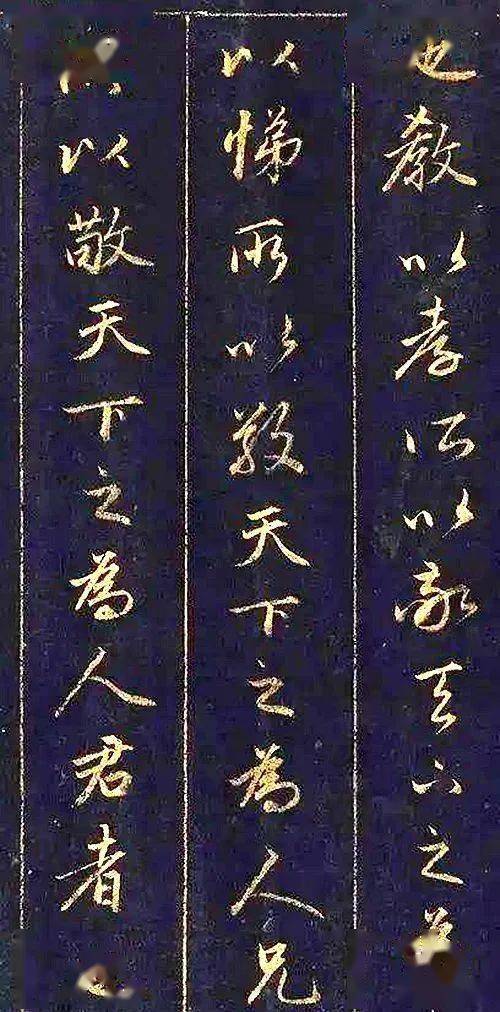 也教以孝所以敬天下之為
以悌所以敬天下之為人兄
以敬天下之為人君者